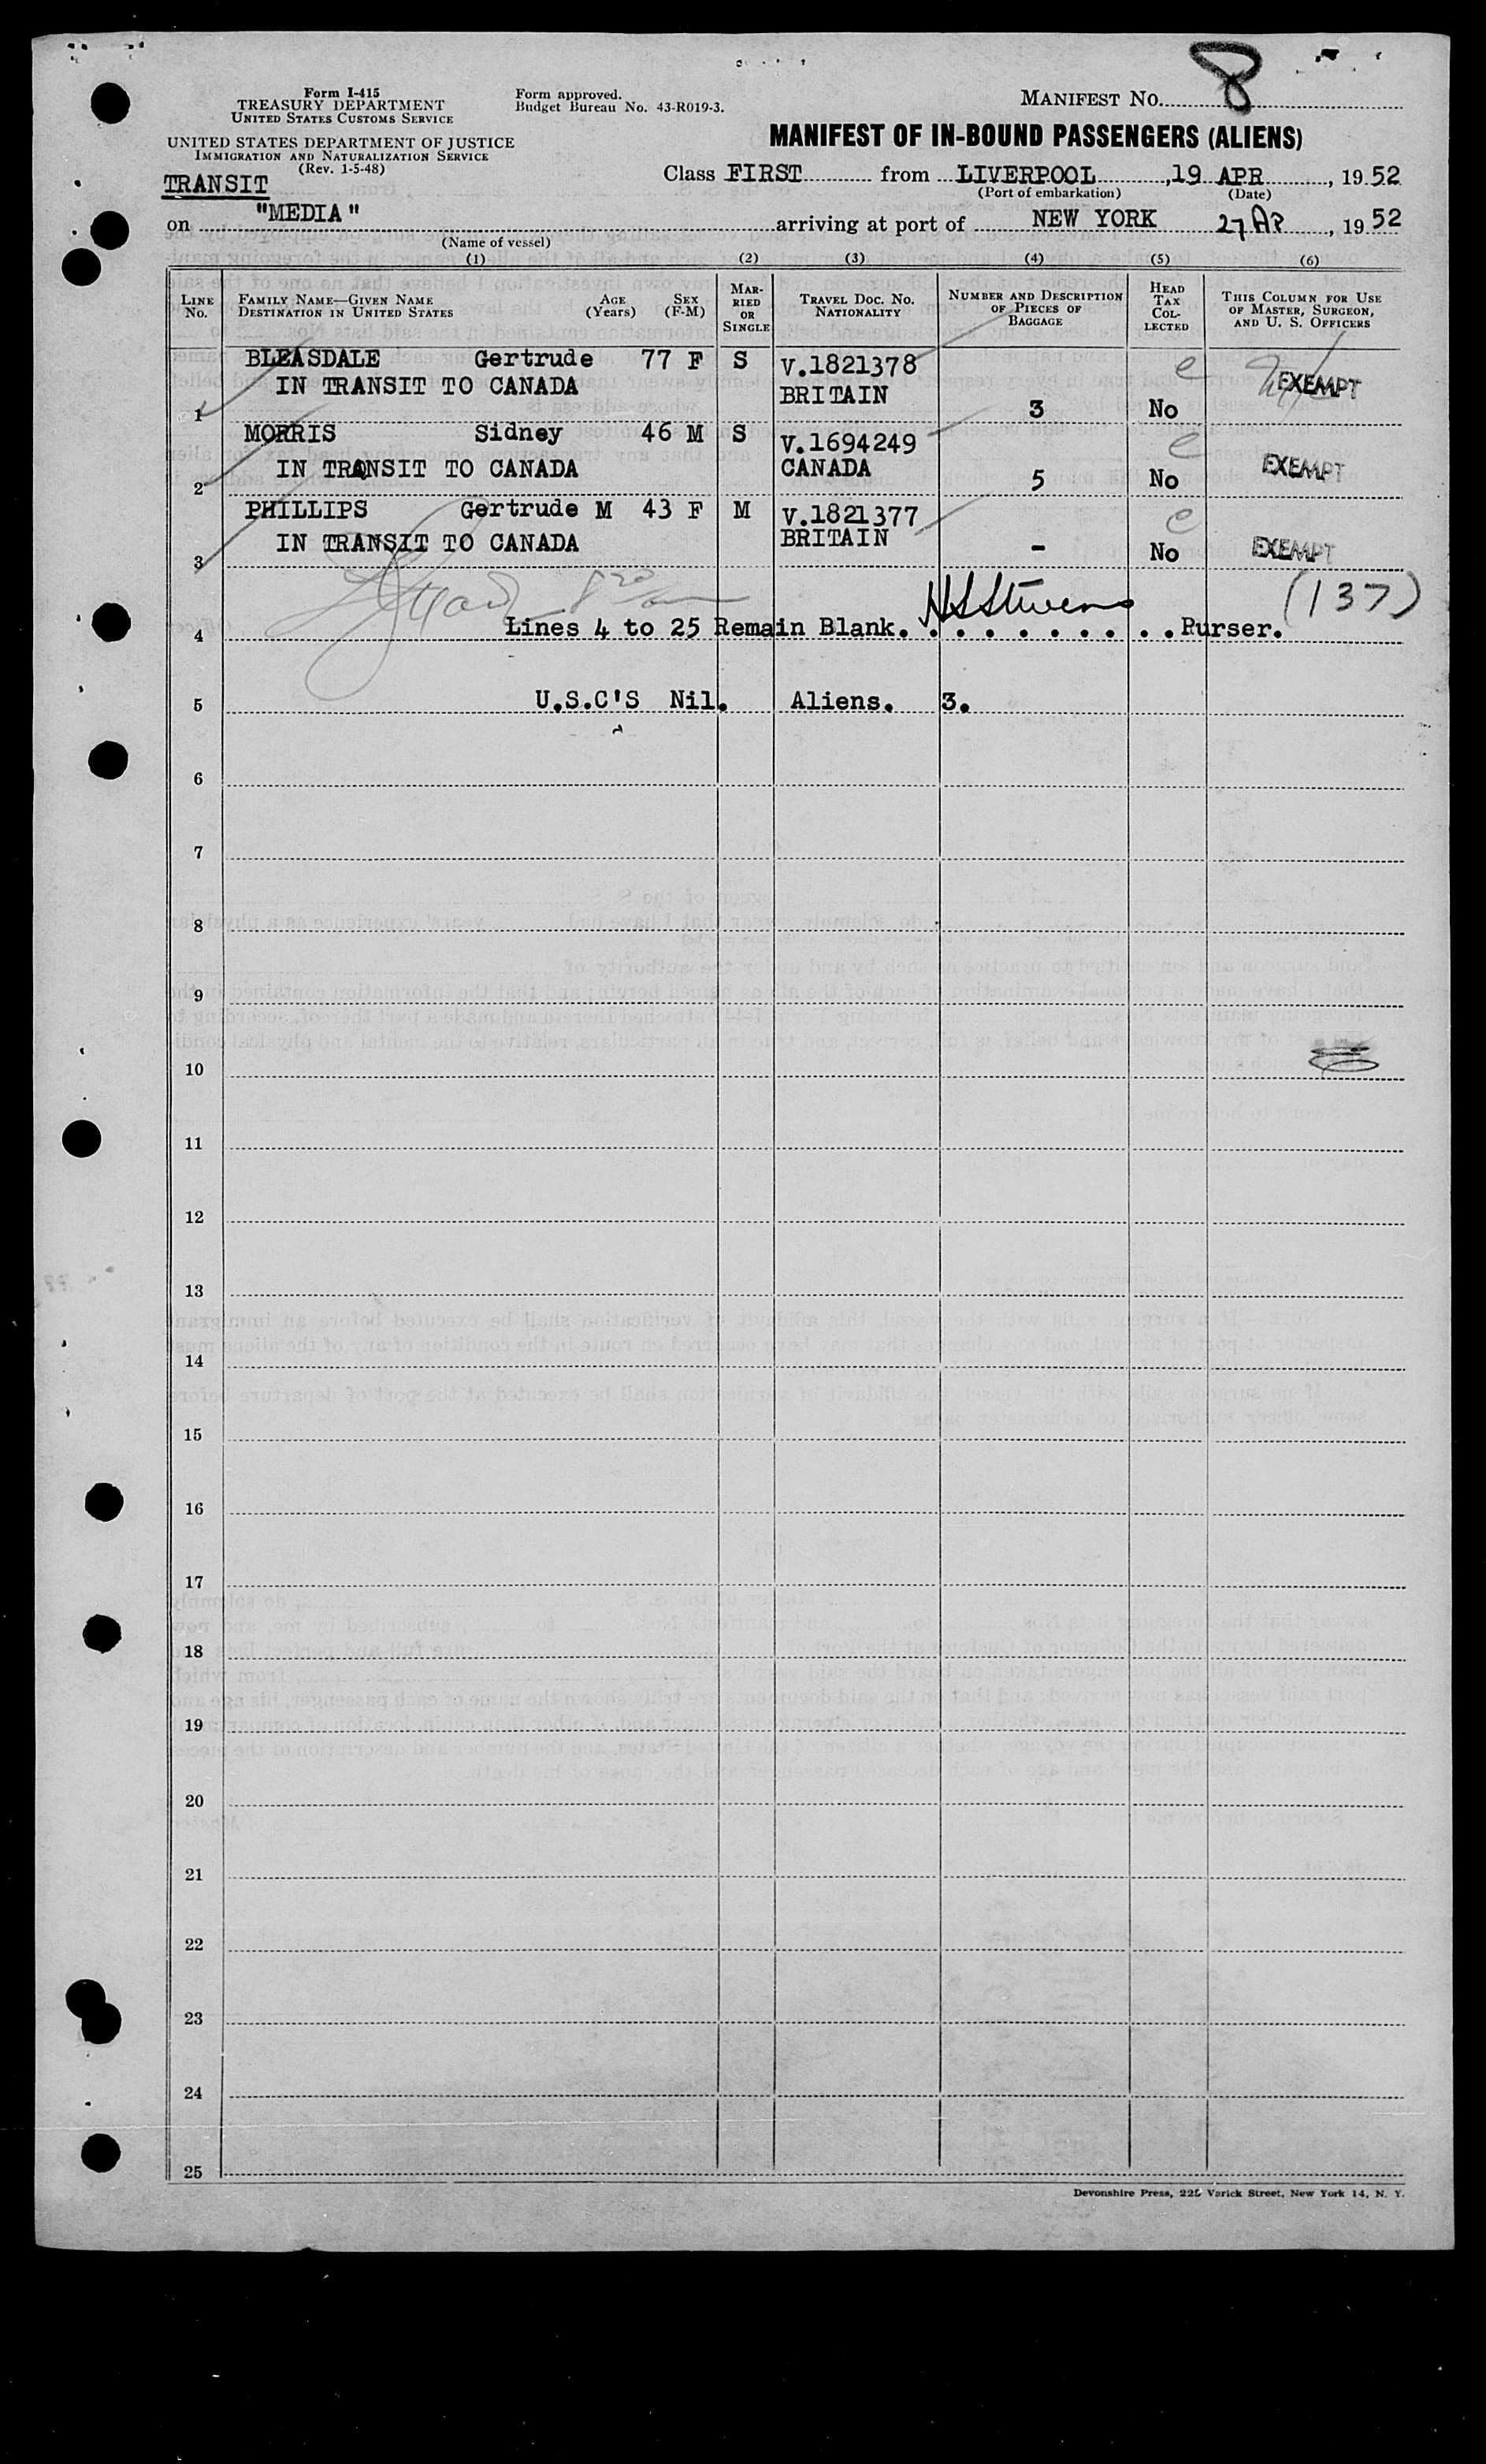 8
Form I-415
TREASURY DEPARTMENT
UNITED STATES CUSTOMS SERVICE
Form approved.
Budget Bureau No. 43-R019-3.
MANIFEST NO.
UNITED STATES DEPARTMENT OF JUSTICE
IMMIGRATION AND NATURALIZATION SERVICE
(Rev. 1-5-48)
MANIFEST OF IN-BOUND PASSENGERS (ALIENS)
TRANSIT
Class FIRST from LIVERPOOL, 19 APR, 1952
(Port of embarkation) (Date)
on "MEDIA" arriving at port of NEW YORK 27 AP, 1952
(Name of vessel)
(1) (2) (3) (4) (5) (6)
LINE NO.
FAMILY NAME—GIVEN NAME
DESTINATION IN UNITED STATES
AGE (Years)
SEX (F-M)
MARRIED OR SINGLE
TRAVEL DOC. NO.
NATIONALITY
NUMBER AND DESCRIPTION OF PIECES OF BAGGAGE
HEAD TAX COLLECTED
THIS COLUMN FOR USE OF MASTER, SURGEON, AND U. S. OFFICERS
BLEASDALE Gertrude 77 F S V.1821378 e EXEMPT
IN TRANSIT TO CANADA BRITAIN
1 3 No
MORRIS Sidney 46 M S V.1694249 e
IN TRANSIT TO CANADA CANADA EXEMPT
2 5 No
PHILLIPS Gertrude M 43 F M V.1821377 e
IN TRANSIT TO CANADA BRITAIN
3 - No EXEMPT
(137)
4 Lines 4 to 25 Remain Blank. HS Stivens Purser.
5 U.S.C'S Nil. Aliens. 3.
6
7
8
9
10
11
12
13
14
15
16
17
18
19
20
21
22
23
24
25
Devonshire Press, 225 Varick Street, New York 14, N. Y.